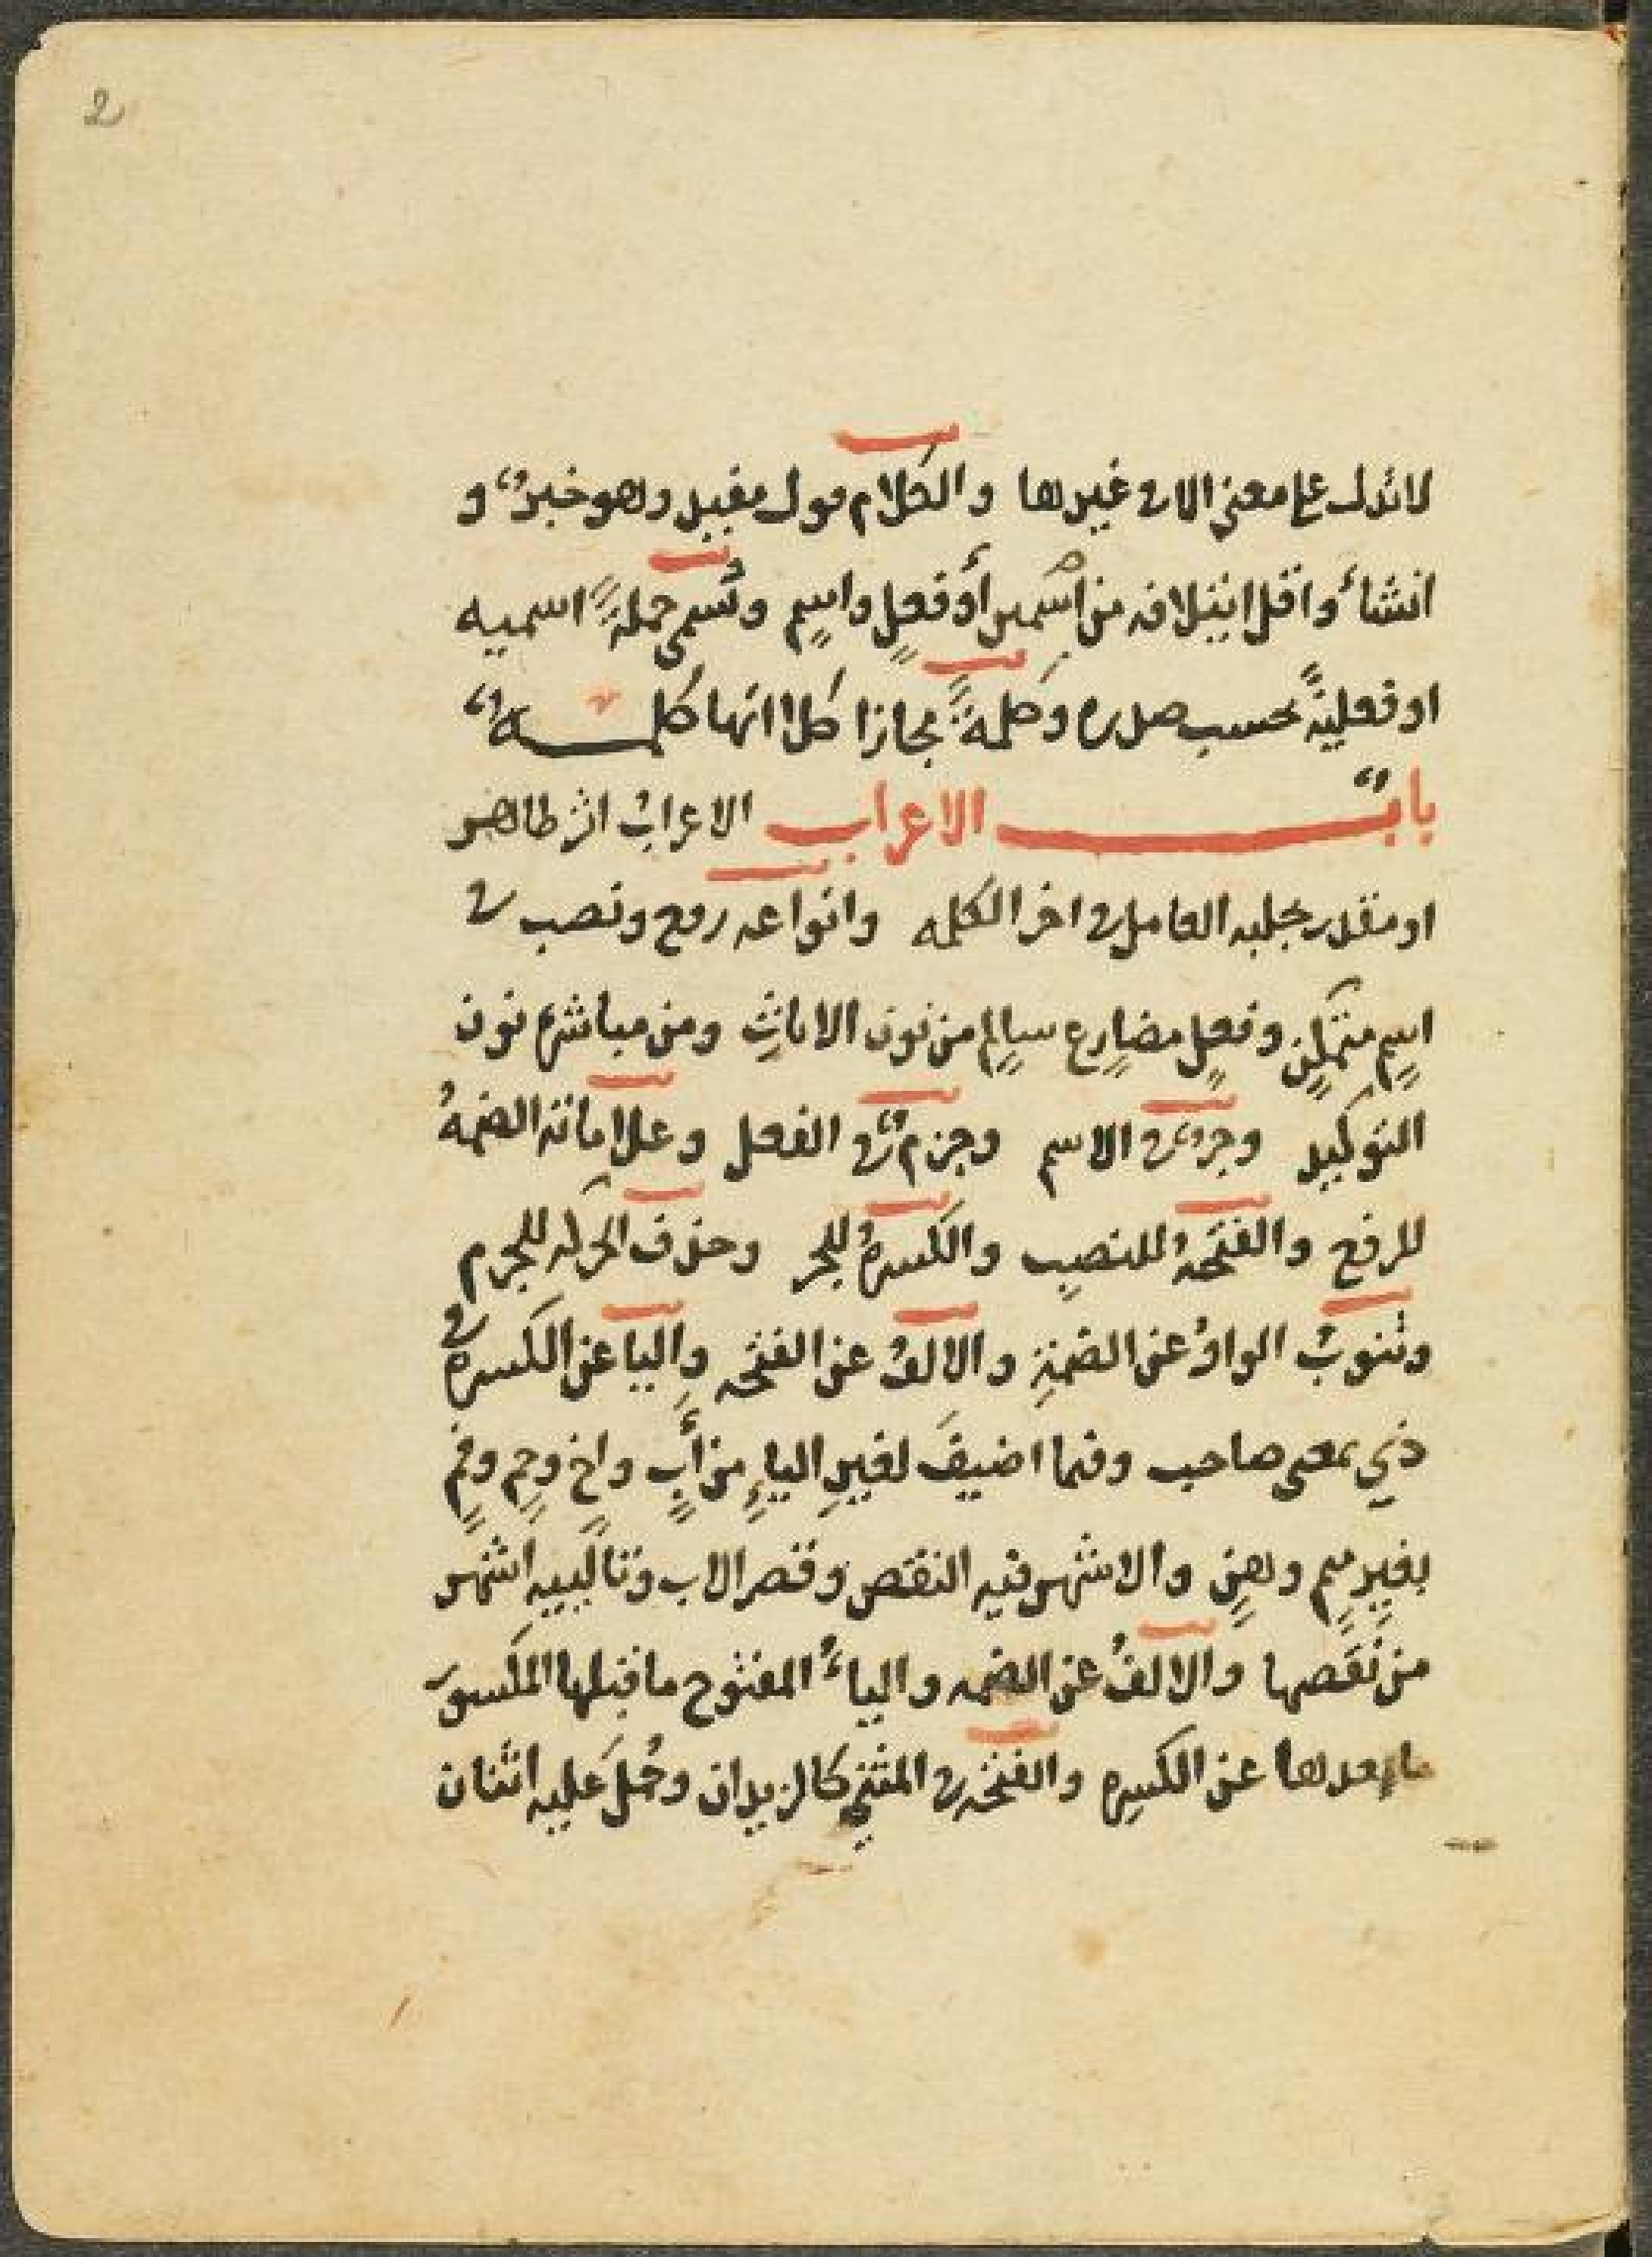 2
لا تدل على معنى الا في غيرها والكلام قول مفيد وهو خبرٌ و
انشاءٌ واقل ايتلافه من اسمين أو فعلٍ واسمٍ وتُسمى جملةً اسميه
او فعليةً بحسب صدره وكلمةً مجازا كلا انها كلمـــة
بابٌ الاعراب الاعرابُ اثر ظاهر
او مقدر يجلبه العامل في اخر الكلمه وانواعه رفع ونصب في
اسمٍ متمكنٍ وفعلٍ مضارعٍ سالمٍ من نون الاناثِ ومن مباشرة نون
التوكيد وجرٌ في الاسم وجزمٌ في الفعل وعلاماته الضمةُ
للرفع والفتحةُ للنصب والكسرةُ للجر وحذف الحركه للجزم
وتنوبُ الواوُ عن الضمةِ والالفُ عن الفتحه والياء عن الكسرة في
ذي بمعنى صاحب وفيما اضيفَ لغيرِ الياءِ من أبٍ واخٍ وحمٍ وفمٍ
بغيرِ ميمٍ وهنٍ والاشهر فيه النقص وقصر الاب وتالييه اشهر
من نقصها والالفُ عن الضمه والياءُ المفتوح ما قبلها المكسور
ما بعدها عن الكسره والفتحه في المثنى كالزيدان وحُمل عليه اثنان